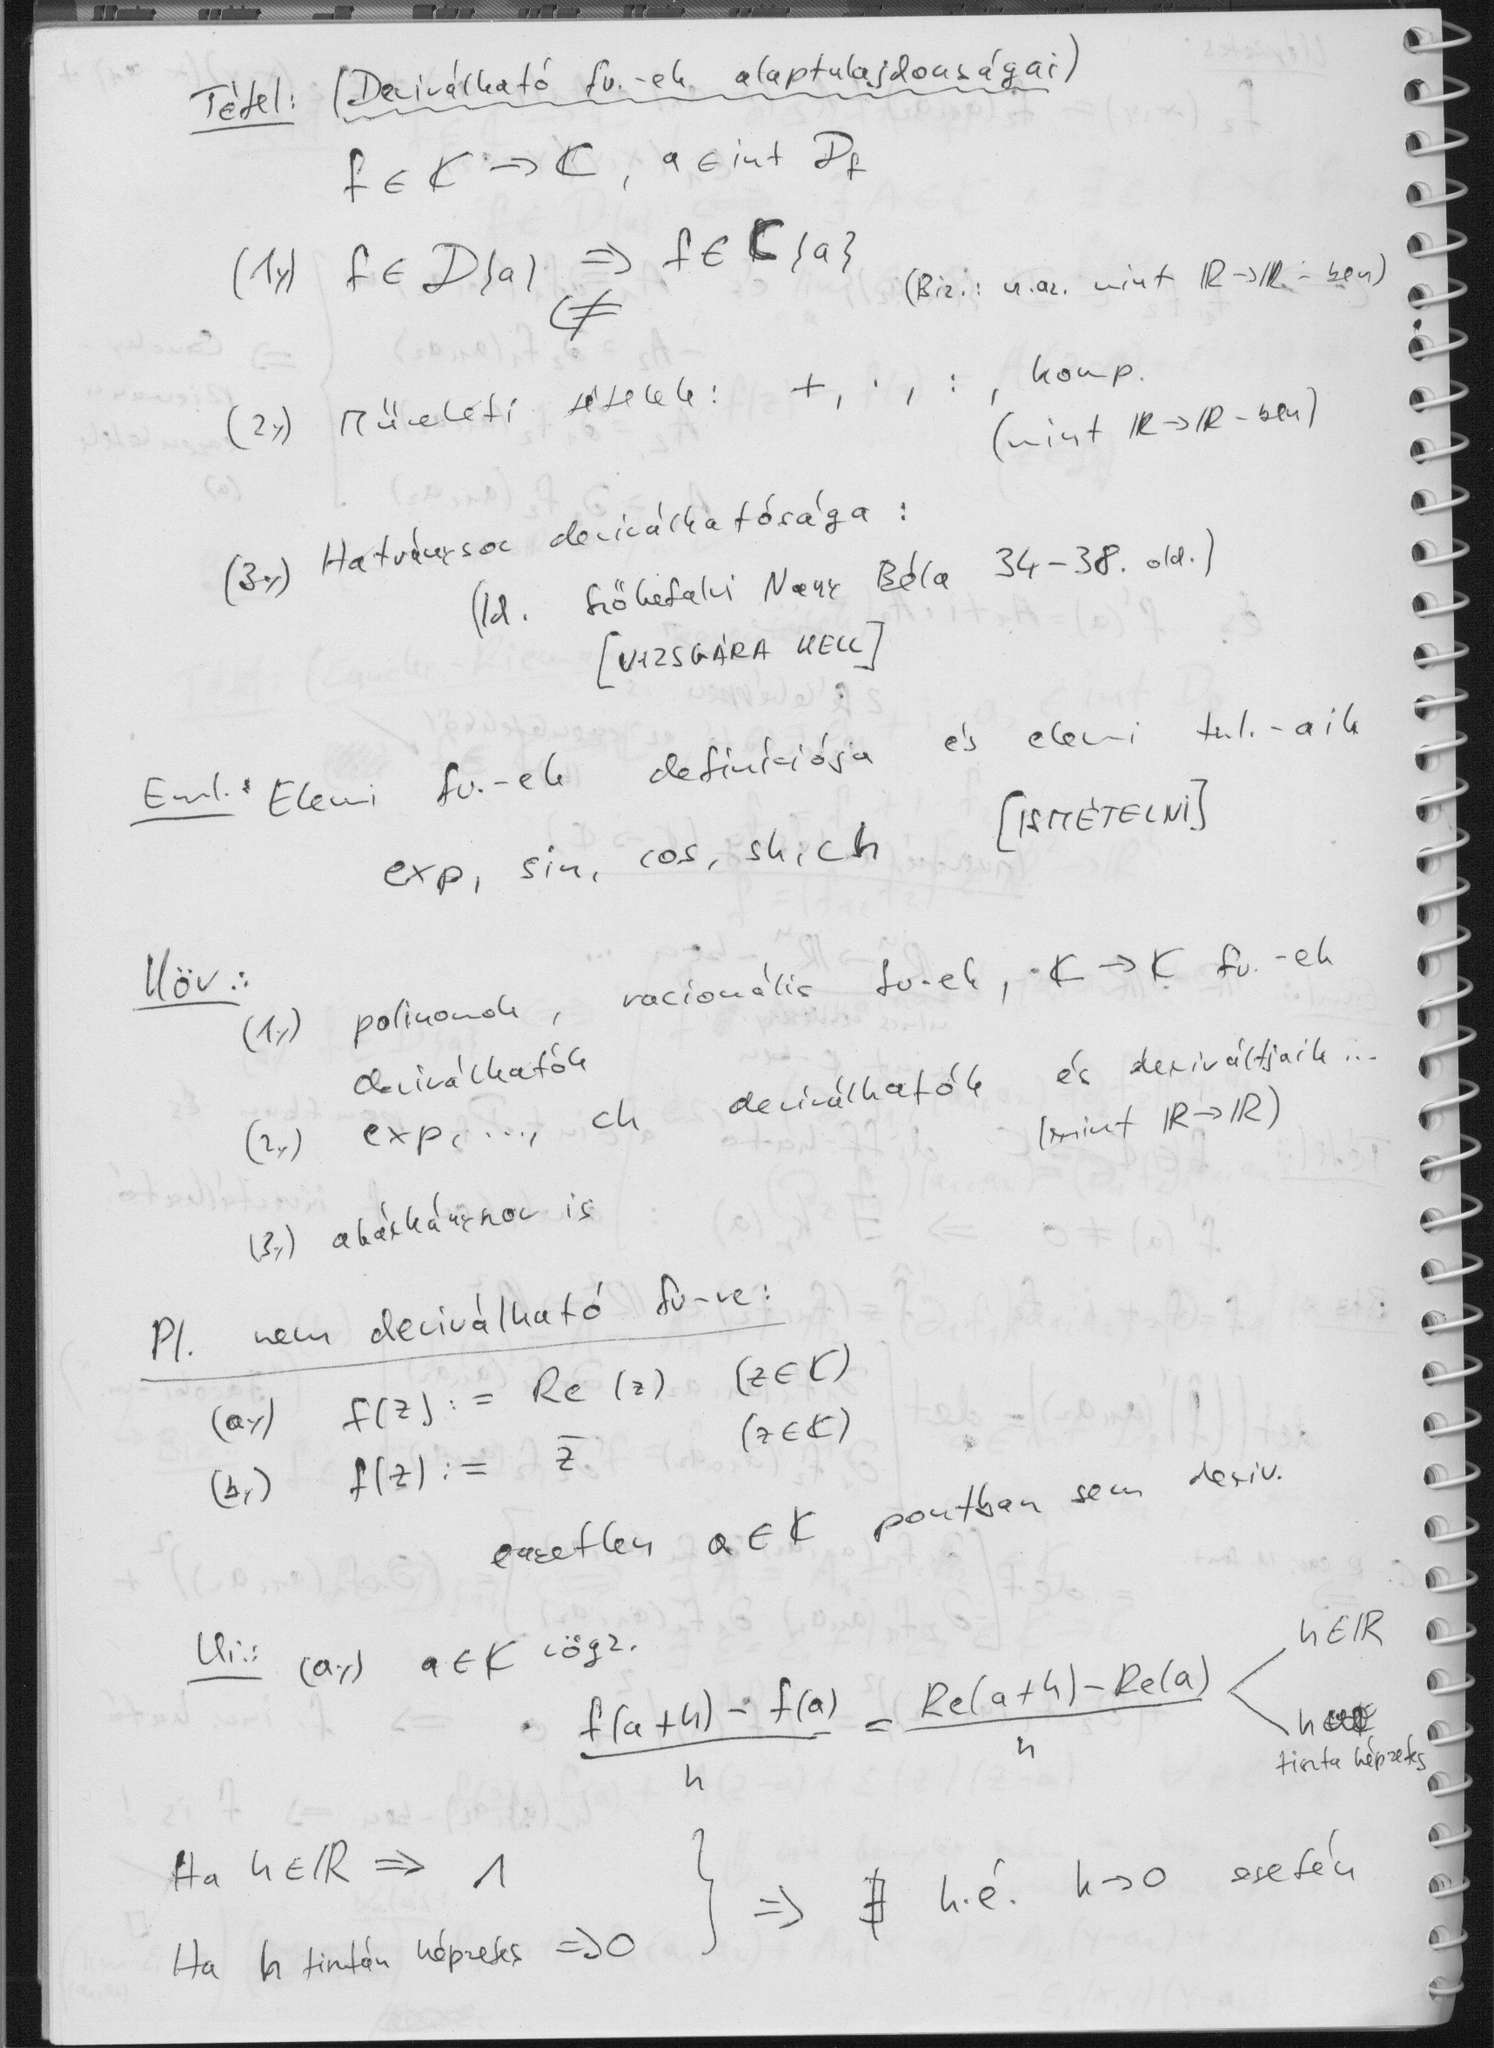 Tétel: (Deriválható fv.-ek alaptulajdonságai)
f ∈ K → K, a ∈ int D_f
(1,) f ∈ D{a} ⇒ f ∈ C{a} (Biz.: u.az. mint R→R-ben)
⇍
(2,) Műveleti tételek: +, ·, :, komp.
(mint R→R-ben)
(3,) Hatványsor deriválhatósága:
(ld. Szőkefalvi Nagy Béla 34-38. old.)
[VIZSGÁRA KELL]
Eml.: Elemi fv.-ek definíciója és elemi tul.-aik
exp, sin, cos, sh, ch [ISMÉTELNI]
Köv.:
(1,) polinomok, racionális fv-ek, K → K fv.-ek
deriválhatók
(2,) exp, ..., ch deriválhatók és deriváltjaik ...
(mint R→R)
(3,) akárhányszor is
Pl. nem deriválható fv-re:
(a,) f(z) := Re(z) (z∈K)
(b,) f(z) := z̄ (z∈K)
egyetlen a ∈ K pontban sem deriv.
Ui.: (a,) a ∈ K rögz.
(f(a+h) - f(a))/h = (Re(a+h) - Re(a))/h h∈R
h tiszta képzetes
Ha h∈R ⇒ 1
Ha h tisztán képzetes ⇒ 0 } ⇒ ∄ h.é. h→0 esetén